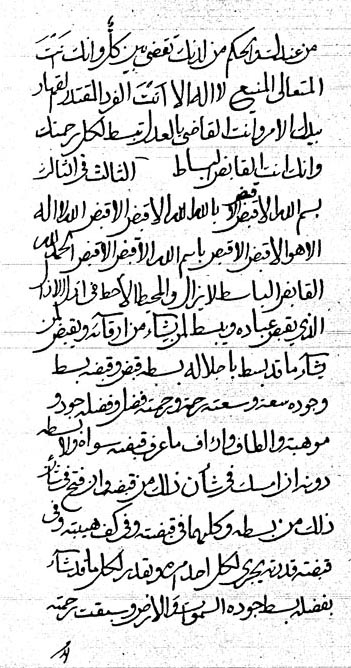 من عندك والحكم من لدنك تقضي بين كل وانك انت
المتعالي المنيع لا اله الا انت الفرد المقتدر القهار
بيدك الامر وانت القاضي بالعدل تبسط لكل رحمتك
وانك انت القابض الباسط الثالث في الثالث
بسم الله الاقبض الاقبض بالله الله الاقبض الاقبض الله لا اله
الا هو الاقبض الاقبض باسم الله الاقبض الاقبض الحمد لله
القابض الباسط لايزال والمحيط الاحط في ازل الازال
الذي يقبض عباده ويبسط لمن يشاء من ارقائه ويقبض لمن
يشاء ما قد بسط باجلاله بسطه قبض وقبضه بسط
وجوده سعة وسعته رحمة ورحمته فضل وفضله جود و
موهبة والطاف وارأف ما عرف قبضته سواه ولا بسطه
دونه ان امسك في شأن ذلك من قبضه وان فتح في شأن
ذلك من بسطه وكليهما في قبضته وفي كف هيبته وفي
قبضته قدرته يجري لكل احد امره ويقدر لكل ما قد شاء
بفضله بسط جوده السموات والارض وسبقت رحمته